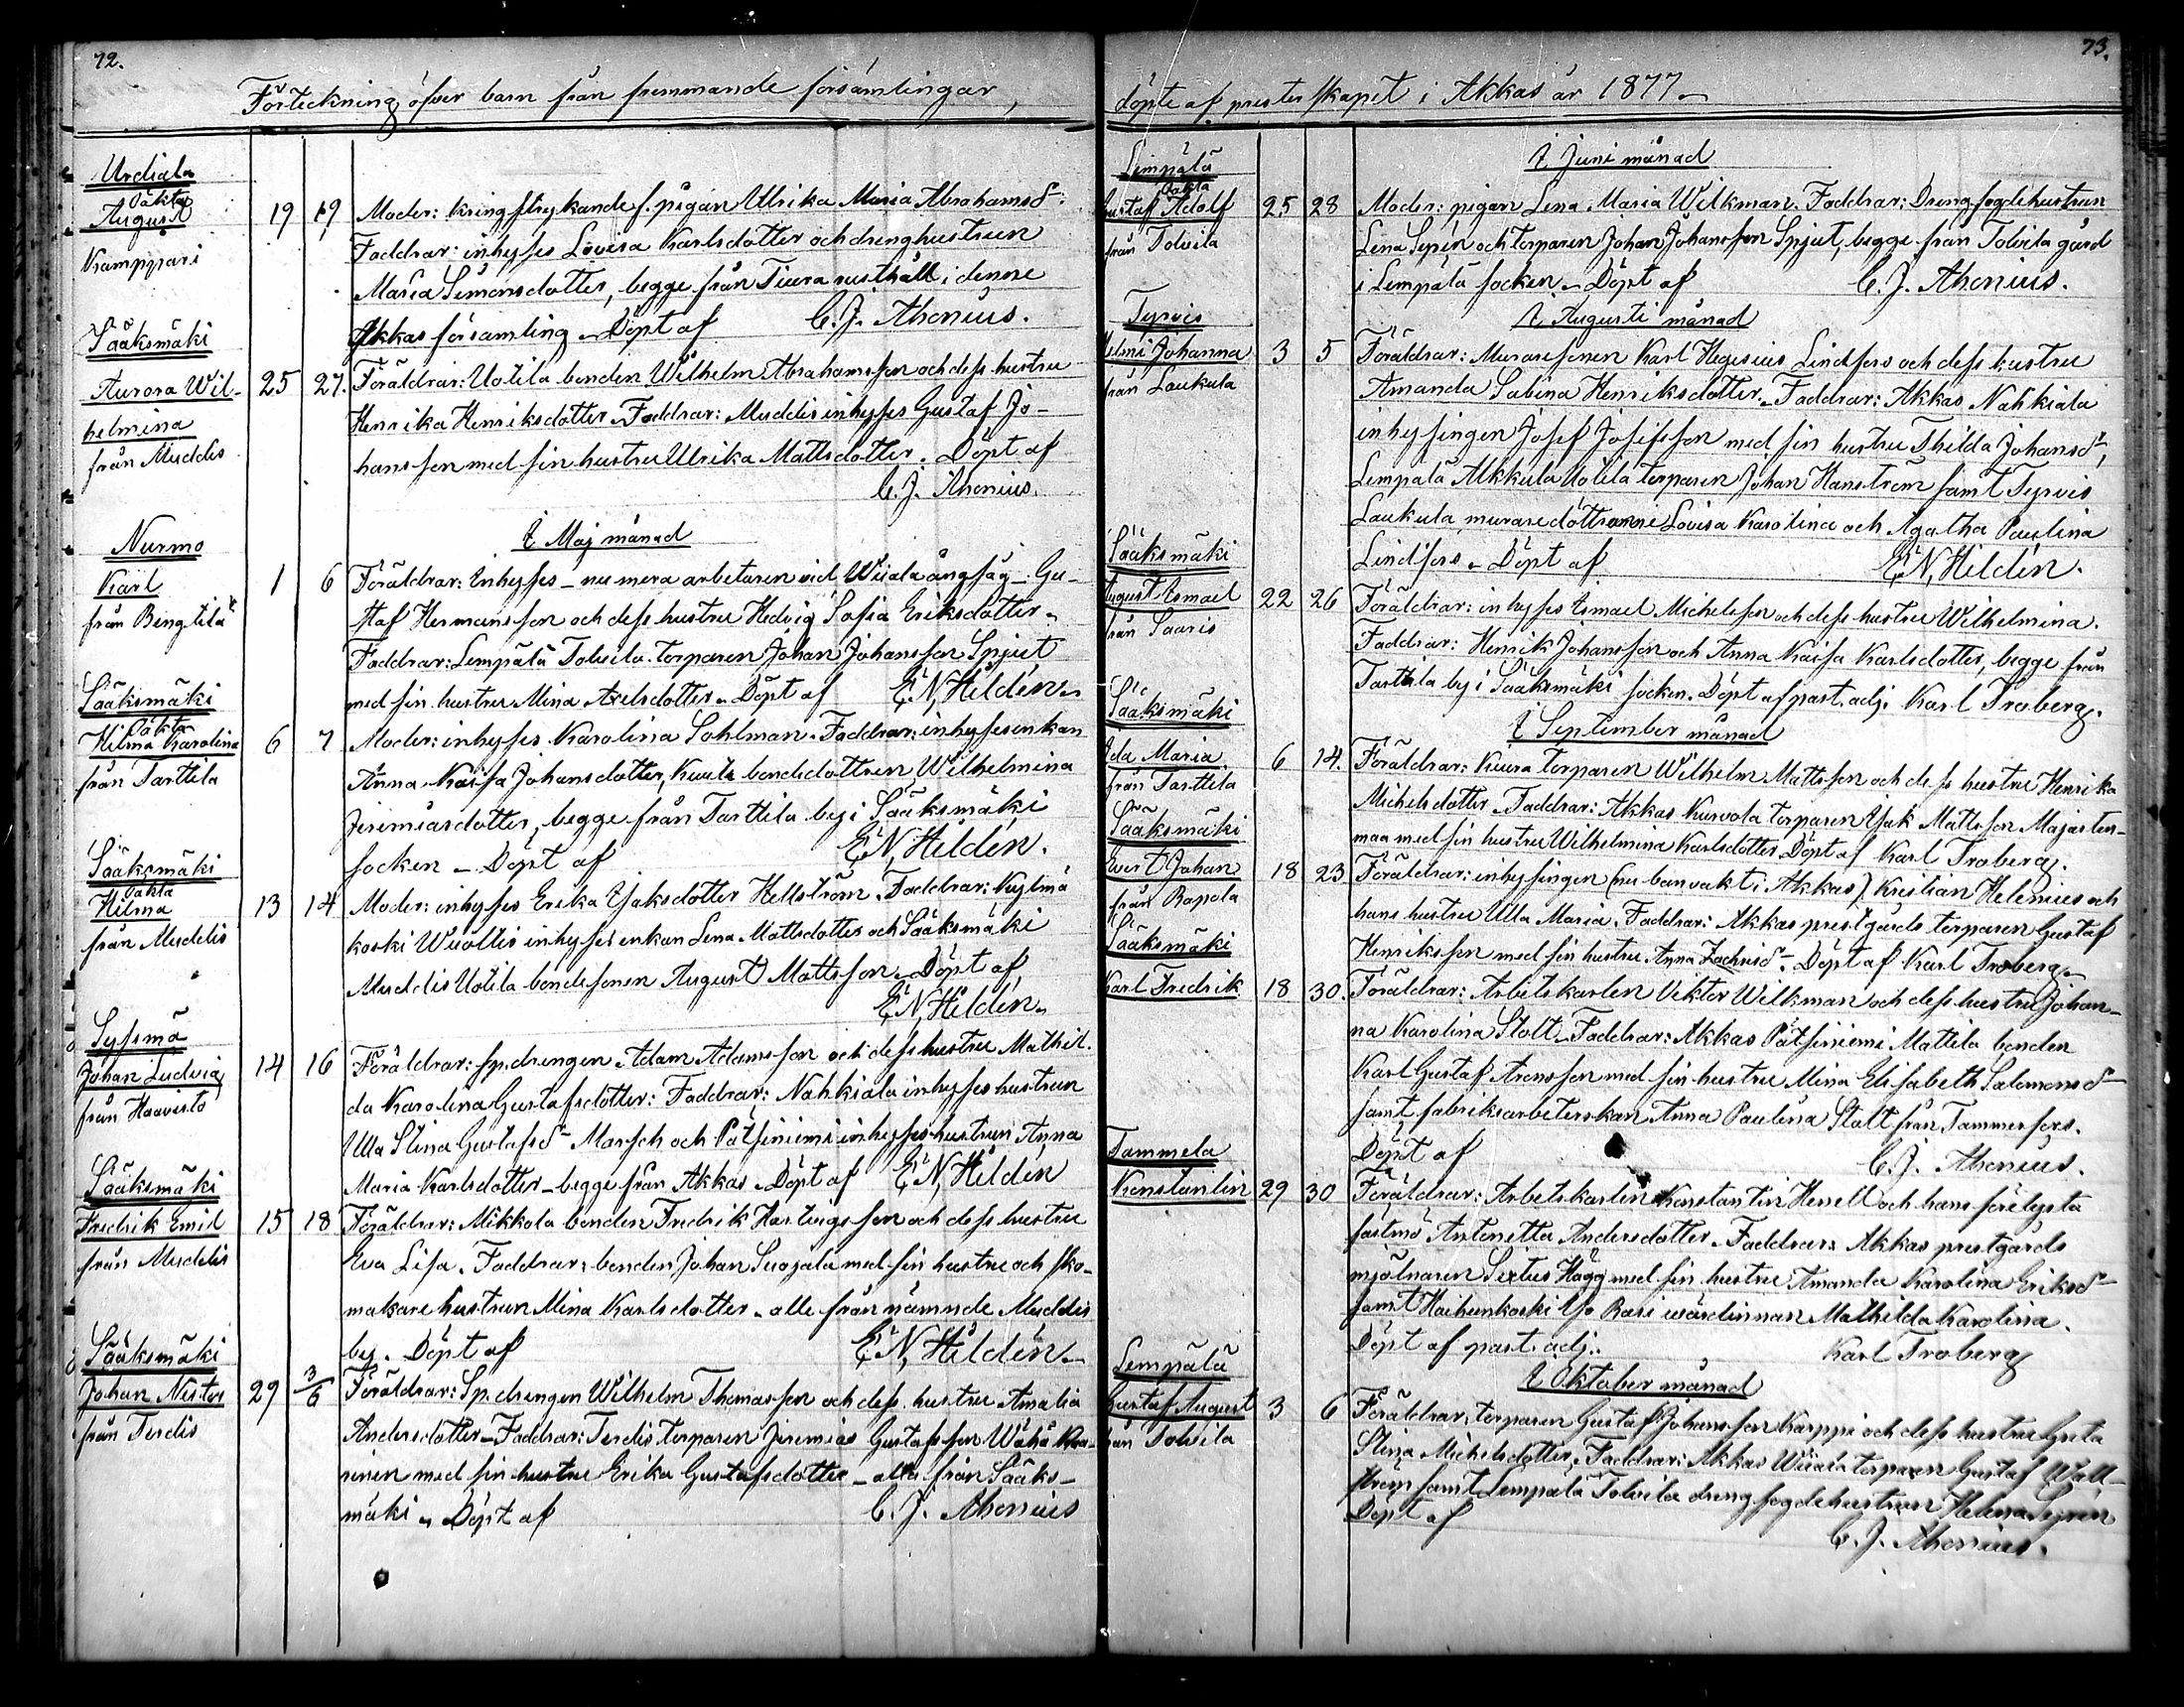 72.
Förteckning öfver barn från fremmande församlingar,
Urdiala
Oäkta
August
Kamppari
19 19 Moder: kringstrykande f. pigan Ulrika Maria Abrahamsdr
Faddrar: inhyses Lovisa Karlsdotter och drenghustrun
Maria Simonsdotter, begge från Tiura rusthåll i denne
Akkas församling. Döpt af C. J. Ahonius.
Sääksmäki
Aurora Wil-
helmina
från Muddis
25 27. Föräldrar: Uotila bonden Wilhelm Abrahamsson och dess hustru
Henrika Henriksdotter. Faddrar: Muddis inhyses Gustaf Jo-
hansson med sin hustru Ulrika Mattsdotter. Döpt af
C. J. Ahonius.
I Maj månad
Nurmo
Karl
från Bengtilä
1 6 Föräldrar: Inhyses - nu mera arbetaren vid Wiiala ångsåg - Gu-
staf Hermansson och dess hustru Hedvig Sofia Eriksdotter.
Faddrar: Lempälä Tolvila torparen Johan Johansson Spjut
med sin hustru Mina Axelsdotter. Döpt af E. N. Hildén.
Sääksmäki
Oäkta
Hilma Karolina
från Tarttila
6 7 Moder: inhyses Karolina Sohlman. Faddrar: inhysesenkan
Anna Kaisa Johansdotter, Kuula bondedottren Wilhelmina
Jeremiasdotter, begge från Tarttila by i Sääksmäki
socken - Döpt af E. N. Hildén.
Sääksmäki
Oäkta
Hilma
från Muddis
13 14 Moder: inhyses Erika Isaksdotter Hellström. Faddrar: Kylmä
koski Wuoltis inhyses enkan Lena Mattsdotter och Sääksmäki
Muddis Uotila bondesonen August Mattsson. Döpt af
E. N. Hildén.
Syssmä
Johan Ludvig
från Haavisto
14 16 Föräldrar: sp. drengen Adam Adamsson och dess hustru Mathil-
da Karolina Gustafsdotter: Faddrar: Nahkiala inhyseshustrun
Ulla Stina Gustafsdr Marsch och Pätsiniemi inhyseshustrun Anna
Maria Karlsdotter - begge från Akkas. Döpt af E. N. Hildén
Sääksmäki
Fredrik Emil
från Muddis
15 18 Föräldrar: Mikkola bonden Fredrik Hartvigsson och dess hustru
Eva Lisa. Faddrar: bonden Johan Suojala med sin hustru och sko-
makare hustrun Mina Karlsdotter - alle från nämnde Muddis
by. Döpt af E. N. Hildén.
Sääksmäki
Johan Nestor
från Terdis
29 3/6 Föräldrar: Sp. drengen Wilhelm Thomasson och dess hustru Amalia
Andersdotter. Faddrar: Terdis torparen Jeremias Gustafsson Wähä
med sin hustru Erika Gustafsdotter - alla från Sääks-
mäki. Döpt af C. J. Ahonius
73.
döpte af presterskapet i Akkas år 1877.
I Juni månad
Lempälä
Oäkta
Gustaf Adolf
från Tolvila
25 28 Moder: pigan Lena Maria Wilkman. Faddrar: Drengfogdehustrun
Lena Sepén och torparen Johan Johansson Spjut, begge från Tolvila gård
i Lempälä socken. Döpt af C. J. Ahonius.
I Augusti månad
Tyrvis
Helmi Johanna
från Laukula
3 5 Föräldrar: Muraresonen Karl Hegesius Lindfors och dess hustru
Amanda Sabina Henriksdotter. Faddrar: Akkas Nahkiala
inhysingen Josef Josefsson med sin hustru Thilda Johansdr,
Lempälä Akkula Uotila torparen Johan Hanström samt Tyrvis
Laukula muraredöttrarne Lovisa Karolina och Agatha Paulina
Lindfors. Döpt af E. N. Hildén.
Sääksmäki
August Ismael
från Saaris
22 26 Föräldrar: inhyses Ismael Michelsson och dess hustru Wilhelmina.
Faddrar: Henrik Johansson och Anna Kaisa Karlsdotter, begge från
Tarttila by i Sääksmäki socken. Döpt af past. adj. Karl Troberg.
I September månad
Sääksmäki
Ida Maria
från Tarttila
6 14. Föräldrar: Kiura torparen Wilhelm Mattsson och dess hustru Henrika
Michelsdotter. Faddrar: Akkas Kurvola torparen Isak Mattsson Majasten-
maa med sin hustru Wilhelmina Karlsdotter. Döpt af Karl Troberg.
Sääksmäki
Evert Johan
från Rapola
18 23 Föräldrar: inhysingen (nu banvakt i Akkas) Kristian Helenius och
hans hustru Ulla Maria. Faddrar: Akkas prestgårds torparen Gustaf
Henriksson med sin hustru Anna Zachrisdr. Döpt af Karl Troberg.
Sääksmäki
Karl Fredrik
18 30. Föräldrar: Arbetskarlen Viktor Wilkman och dess hustru Johan-
na Karolina Stolt. Faddrar: Akkas Pätsiniemi Mattila bonden
Karl Gustaf Aronsson med sin hustru Mina Elisabeth Salomonsdr
samt fabriksarbeterskan Anna Paulina Stolt från Tammerfors.
Döpt af C. J. Ahonius.
Tammela
Konstantin
29 30 Föräldrar: Arbetskarlen Konstantin Henell och hans förelysta
fästmö Antonetta Andersdotter. Faddrar: Akkas prestgårds
mjölnaren Sixtus Hägg med sin hustru Amanda Karolina Eriksdr
samt Haihunkoski Yso Rasi wärdinnan Mathilda Karolina.
Döpt af past. adj. Karl Troberg
I Oktober månad
Lempälä
Gustaf August
från Tolvila
3 6 Föräldrar: torparen Gustaf Johansson Karppi och dess hustru Greta
Stina Michelsdotter. Faddrar: Akkas Wiiala torparen Gustaf Wall-
ström samt Lempälä Tolvila drengfogdehustrun Helena Sepén
Döpt af C. J. Ahonius.